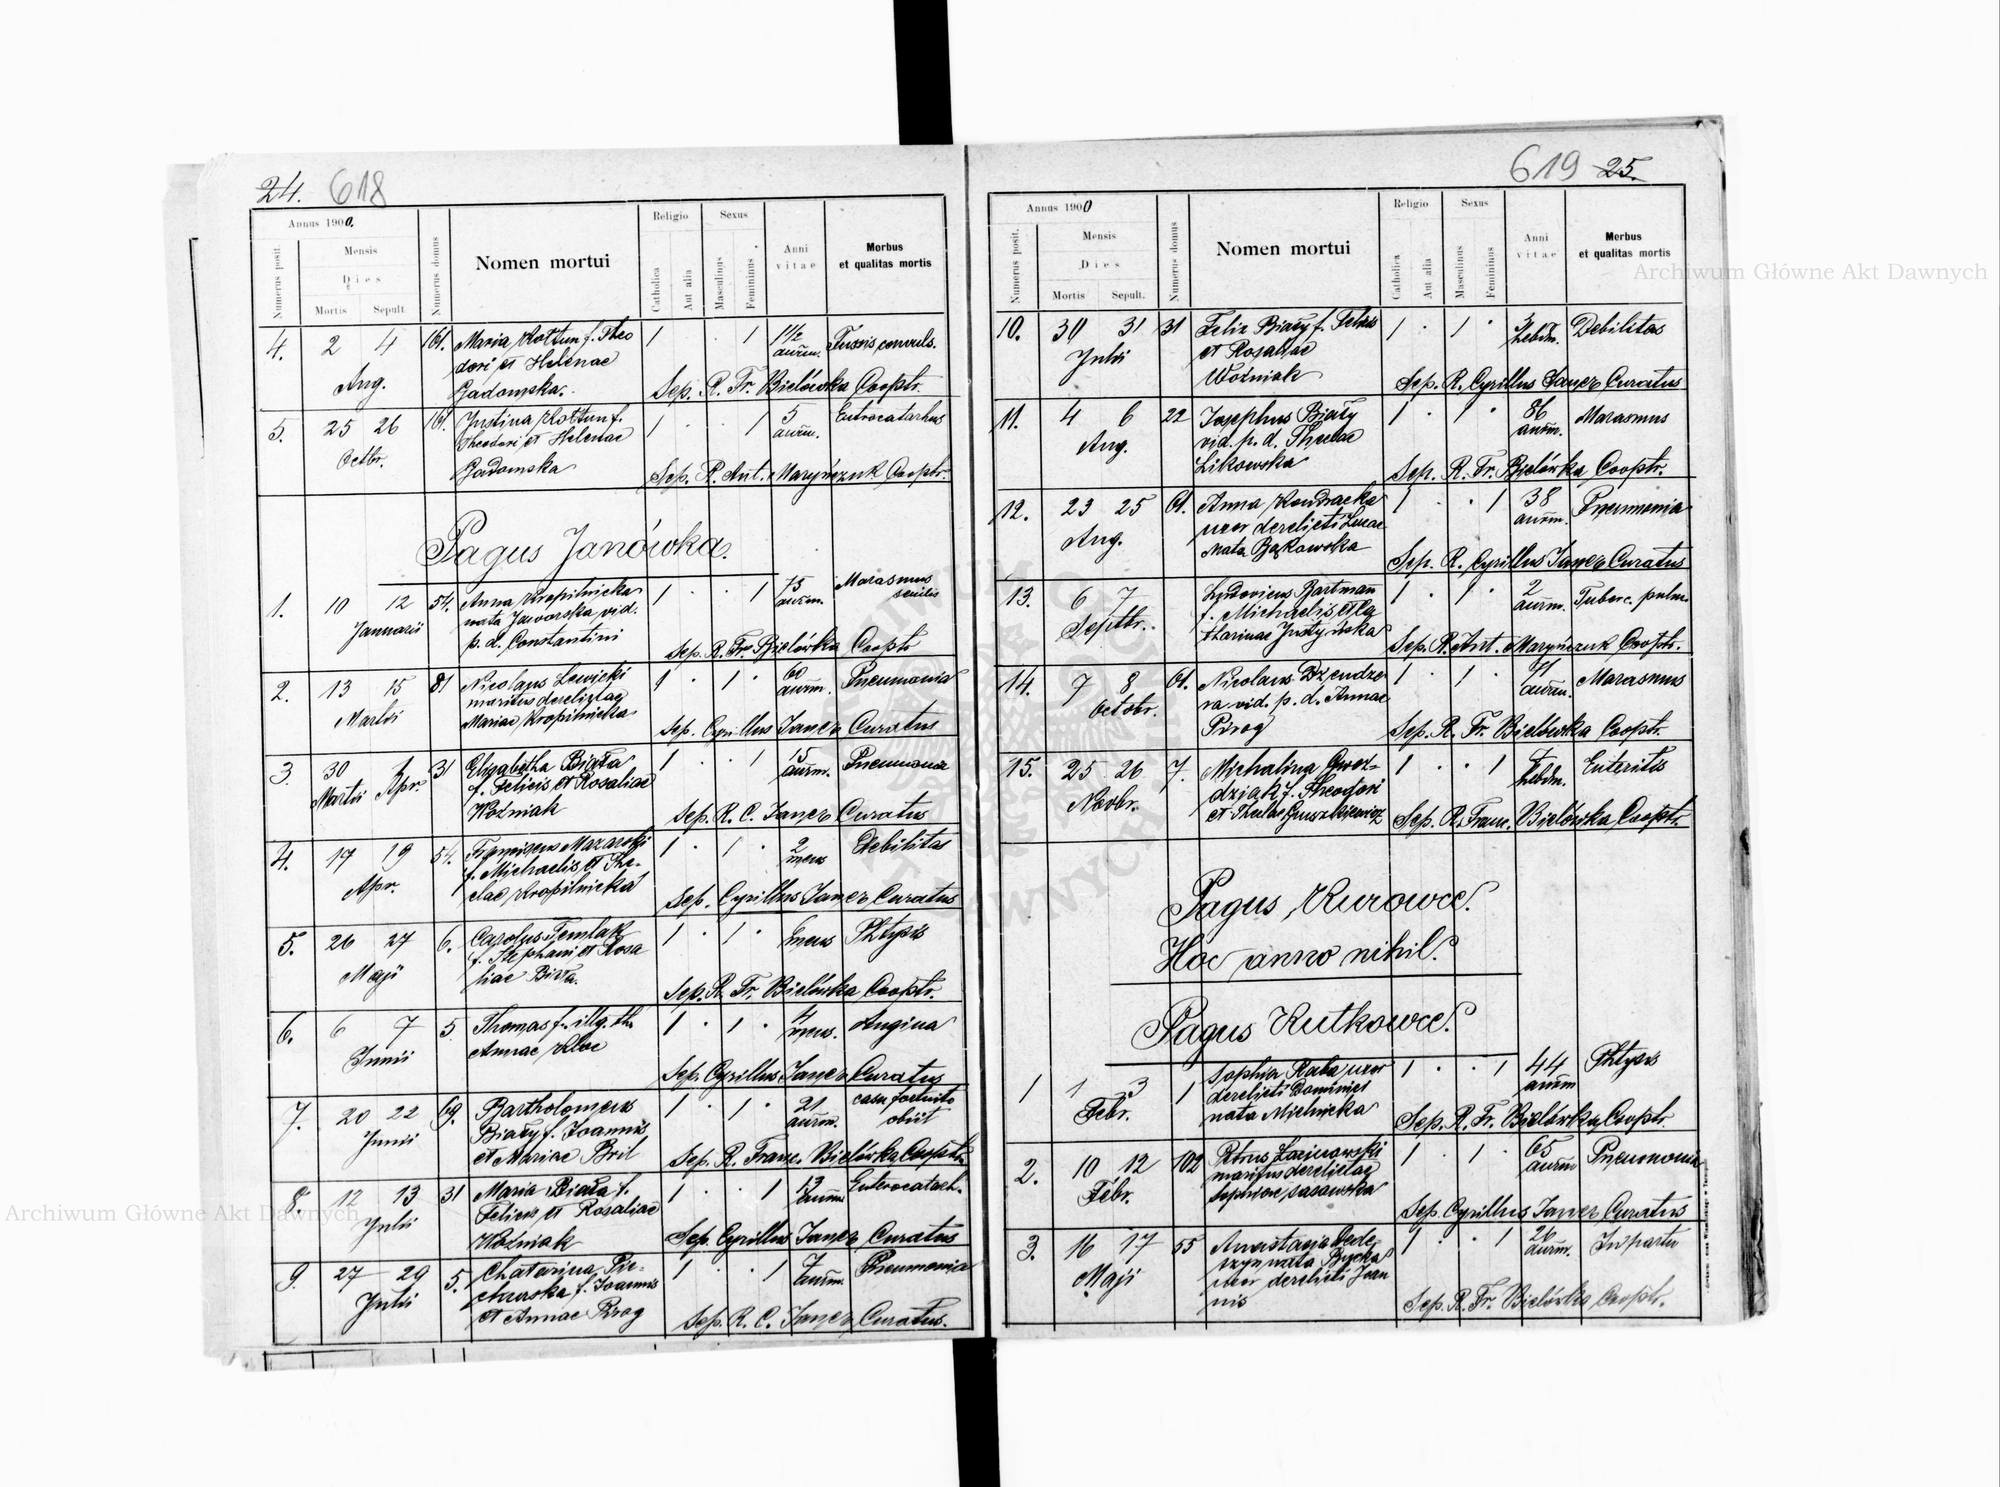 24. 618
Annus 1900.
Numerus posit.
Mensis
Dies
Mortis Sepult
Numerus domus
Nomen mortui
Religio
Catholica
Aut alia
Sexus
Masculinus
Femininus
Anni vitae
Morbus et qualitas mortis
4. 2 4 161. Maria Kottun f. Theo 1 . . 1 1 1/2 Tussis convuls.
Aug. dori et Helenae annm.
Gadomska. Sep. R. Fr. Bielówka Cooptr.
5. 25 26 161. Justina Kottun f. 1 . . 1 5 Enterocatarhus
Octbr. Theodori et Helenae annm.
Gadomska Sep. R. Ant. Maryńczuk Cooptr.
Pagus Janówka.
1. 10 12 54. Anna Kropilnicka 1 . . 1 75 Marasmus
Januarii nata Jaworska vid. annm. senilis
p. d. Constantini Sep. R. Fr. Bielówka Cooptr
2. 13 15 81 Nicolaus Lewicki 1 . 1 . 60 Pneumonia
Martii maritus derelictae annm.
Mariae Kropilnicka Sep. Cyrillus Janer Curatus
3. 30 1 31 Elisabetha Biała 1 . . 1 15 Pneumonia
Martii Apr. f. Felicis et Rosaliae annm.
Woźniak Sep. R. C. Janer Curatus
4. 17 19 54. Franciscus Mazarski 1 . 1 . 2 Debilitas
Apr. f. Michaelis et The- mens
clae Kropilnicka Sep. Cyrillus Janer Curatus
5. 26 27 6. Carolus Temlak 1 . 1 . mens Phtysis
Maji f. Stephani et Rosa
liae Sep. R. Fr. Bielówka Cooptr.
6. 6 7 5 Thomas f. illg. th. 1 . 1 . 4 Angina
Junii Annae mens.
Sep. Cyrillus Janer Curatus
7. 20 22 69. Bartholomeus 1 . 1 . 21 casu fortuito
Junii Biały f. Joannis annm. obiit
et Mariae Bril Sep. R. Franc. Bielówka Cooptr.
8. 12 13 31 Maria Biała f. 1 . . 1 13 Enterocatarh.
Julii Felicis et Rosaliae annm
Woźniak Sep. Cyrillus Janer Curatus
9. 27 29 5. Chatarina Pie- 1 . . 1 7 Pneumonia
Julii f. Joannis annm.
et Annae Prog Sep. R. C. Janer Curatus.
619 25.
Annus 1900
Numerus posit.
Mensis
Dies
Mortis Sepult.
Numerus domus
Nomen mortui
Religio
Catholica
Aut alia
Sexus
Masculinus
Femininus
Anni vitae
Morbus et qualitas mortis
10. 30 31 31 Felix Biały f. Felicis 1 . 1 . 3 Debilitas
Julii et Rosaliae hebdm.
Woźniak Sep. R. Cyrillus Janer Curatus
11. 4 6 22 Josephus Biały 1 . 1 . 86 Marasmus
Aug. vid. p. d. Theclae annm.
Likowska Sep. R. Fr. Bielówka Cooptr.
12. 23 25 61. Anna Kondracka 1 . . 1 38 Pneumonia
Aug. uxor derelicti Lucae annm.
nata Bąkowska Sep. R. Cyrillus Janer Curatus
13. 6 7 Ludovicus Bartmann 1 . 1 . 2 Tuberc. pulm.
Septbr. f. Michaelis et Ca annm.
tharinae Justyńska Sep. R. Ant. Maryńczuk Cooptr.
14. 7 8 61. Nicolaus Dżendze 1 . 1 . 71 Marasmus
Octobr. ra vid. p. d. Annae annm.
Prog Sep. R. Fr. Bielówka Cooptr.
15. 25 26 7. Michalina Gwoz- 1 . . 1 7 Enteritis
Novbr. dziak f. Theodori hebdm.
et Theclae Gruszkiewicz Sep. R. Franc. Bielówka Cooptr.
Pagus Kurowce.
Hoc anno nihil.
Pagus Kutkowce.
1 1 3 1 Sophia Raba uxor 1 . . 1 44 Phtysis
Febr. derelicti Dominici annm
nata Mielnicka Sep. R. Fr. Bielówka Cooptr.
2. 10 12 102 Petrus Łozinowski 1 . 1 . 65 Pneumonia
Febr. maritus derelictae annm
Sophiae Sasowska Sep. Cyrillus Janer Curatus
3. 16 17 55 Anastasia 1 . . 1 26 In partu
Maji nata Bycka annm.
uxor derelicti Joan
nis Sep. R. Fr. Bielówka Cooptr.
Archiwum Główne Akt Dawnych
Archiwum Główne Akt Dawnych